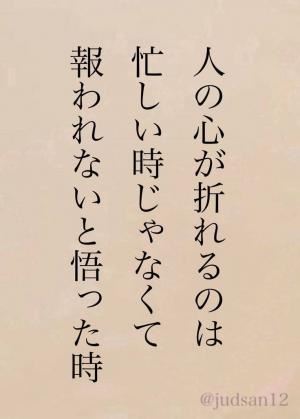 人の心が折れるのは
忙しい時じゃなくて
報われないと悟った時
@judsan12